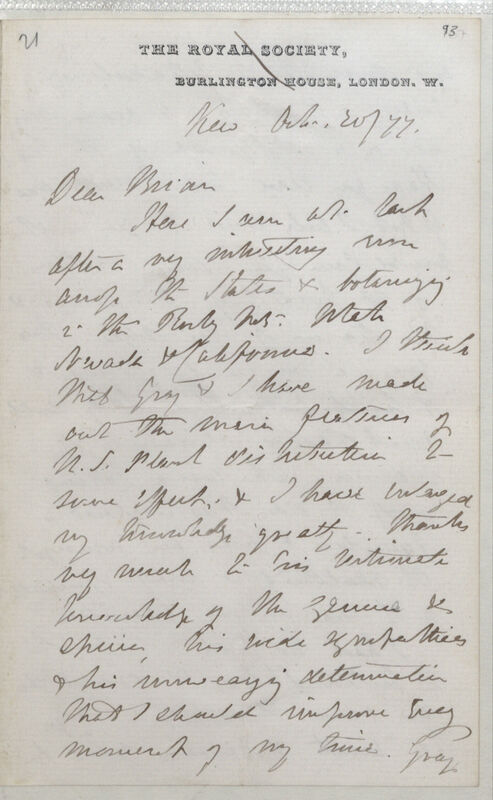 21
93
THE ROYAL SOCIETY,
BURLINGTON HOUSE, LONDON. W.
Kew Octr. 20/77.
Dear Brian
Here I am at last
after a very interesting run
across the States & botanizing
in the Rocky Mts. Utah
Nevada & California. I think
that Gray & I have made
out the main features of
N. S. Plant distribution to
some effect, & I have enlarged
my knowledge greatly. thanks
very much to his intimate
knowledge of the Genera &
species, his wide sympathies
& his unwearying determination
that I should improve every
moment of my time. Gray